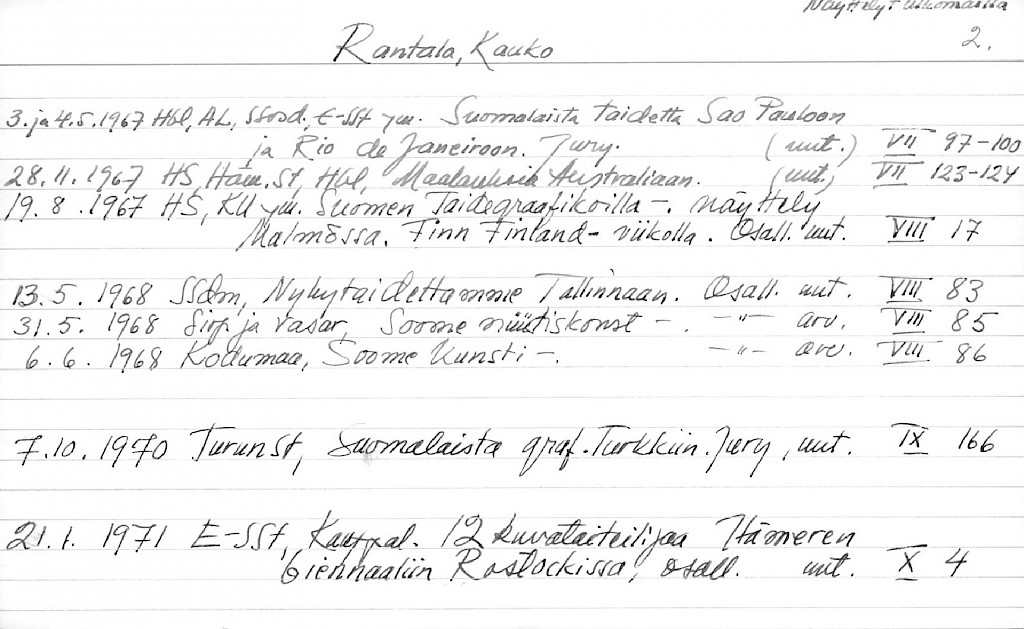 Näyttelyt ulkomailla
2.
Rantala, Kauko
3. ja 4.5.1967 Hbl, AL, SSosd, E-SSt ym. Suomalaista taidetta Sao Pauloon
ja Rio de Janeiroon. Jury. (uut.) VII 97-100
28.11.1967 HS, Häm.St, Hbl, Maalauksia Australiaan. (uut.) VII 123-124
19.8.1967 HS, KU ym. Suomen Taidegraafikoilla -. näyttely
Malmössa. Finn Finland- viikolla. Osall. uut. VIII 17
13.5.1968 SSdm, Nykytaidettamme Tallinnaan. Osall. uut. VIII 83
31.5. 1968 Sirp ja Vasar, Soome nüütiskonst -. -"- arv. VIII 85
6.6.1968 Kodumaa, Soome Kunsti -. -"- arv. VIII 86
7.10.1970 TurunSt, Suomalaista graf. Turkkiin. Jury, uut. IX 166
21.1.1971 E-SSt, Kauppal. 12 kuvataiteilijaa Itämeren
biennaaliin Rostockissa, osall. uut. X 4